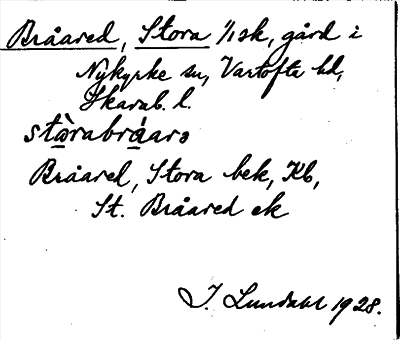 Bråared, Stora 1/1 sk, gård i
Nykyrke sn, Vartofta hd,
Skarab. l.
stòrabråarə
Bråared, Stora bek, Kb,
St. Bråared ek
J. Lundahl 1928.